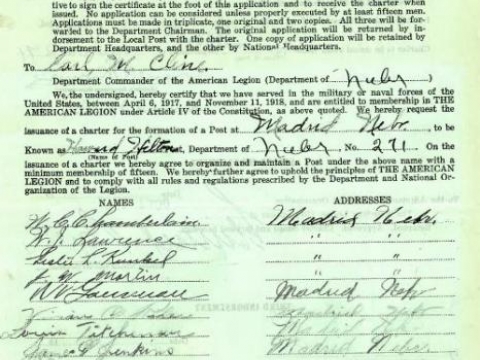 tive to sign the certificate at the foot of this application and to receive the charter when
issued. No application can be considered unless properly executed by at least fifteen men.
Applications must be made in triplicate, one original and two copies. All three will be for-
warded to the Department Chairman. The original application will be returned by in-
dorsement to the Local Post with the charter. One copy of application will be retained by
Department Headquarters, and the other by National Headquarters.
To Earl M Cline
Department Commander of the American Legion (Department of Nebr)
We, the undersigned, hereby certify that we have served in the military or naval forces of the
United States, between April 6, 1917, and November 11, 1918, and are entitled to membership in THE
AMERICAN LEGION under Article IV of the Constitution, as above quoted. We hereby request the
issuance of a charter for the formation of a Post at Madrid Nebr. to be
Known as Howard Hilton Post, Department of Nebr, No. 271. On the
(Name of Post)
issuance of a charter we hereby agree to organize and maintain a Post under the above name with a
minimum membership of fifteen. We hereby further agree to uphold the principles of THE AMERICAN
LEGION and to comply with all rules and regulations prescribed by the Department and National Or-
ganization of the Legion.
NAMES ADDRESSES
W. C. Chamberlain Madrid Nebr.
W. J. Lawrence " "
Leslie L. Kunkel " "
J. W. Martin " "
Madrid Nebr
Madrid Nebr
Jenkins Madrid Nebr.